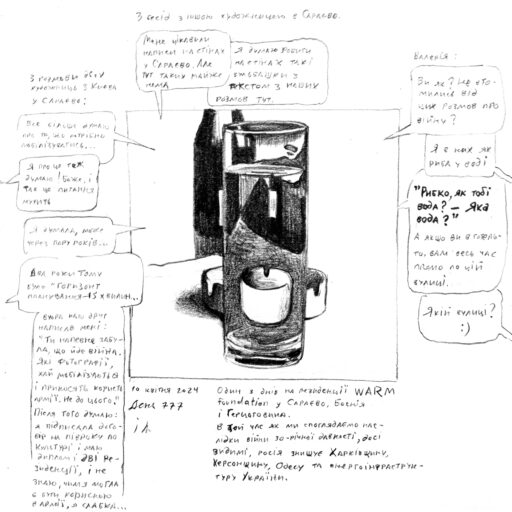 З бесід з іншою художницею в Сараєво.
Мене цікавили
написи на стінах
у Сараєво. Але
тут таких майже
нема
Я думаю робити
на стінах такі
бульбашки з
текстом з наших
розмов тут.
З розмови двох
художниць з Києва
у Сараєво:
Все більше думаю
про те, що потрібно
мобілізуватись...
Я про це теж
думаю! Боже, і
так це питання
мучить
Я думала, може
через пару років...
Два роки тому
був "горизонт
планування–15 хвилин...
Вчора наш друг
написав мені:
"Ти напевне забу-
ла, що йде війна.
Які фотографії,
хай мобілізується
і приносять користь
армії. Не до цього!"
Після того думаю:
я підписала дого-
вір на півроку по
культурі і маю
дипломи і дві ре-
зиденції, і не
знаю, чи я могла
б бути корисною
в армії, я слабка...
Валерія:
Ви як? Не вто-
мились від
цих розмов про
війну?
Я в них як
риба у воді
"Рибко, як тобі
вода? – Яка
вода?"
А якщо ви в готель-
то, вам весь час
прямо по цій
вулиці.
Якій вулиці?
:)
10 квітня 2024
День 777
Один з днів на резиденції WARM
foundation у Сараєво, Боснія
і Герцеговина.
В той час як ми споглядаємо нас-
лідки війни 30-річної давності, досі
видимі, росія знищує Харківщину,
Херсонщину, Одесу та енергоінфраструк-
туру України.